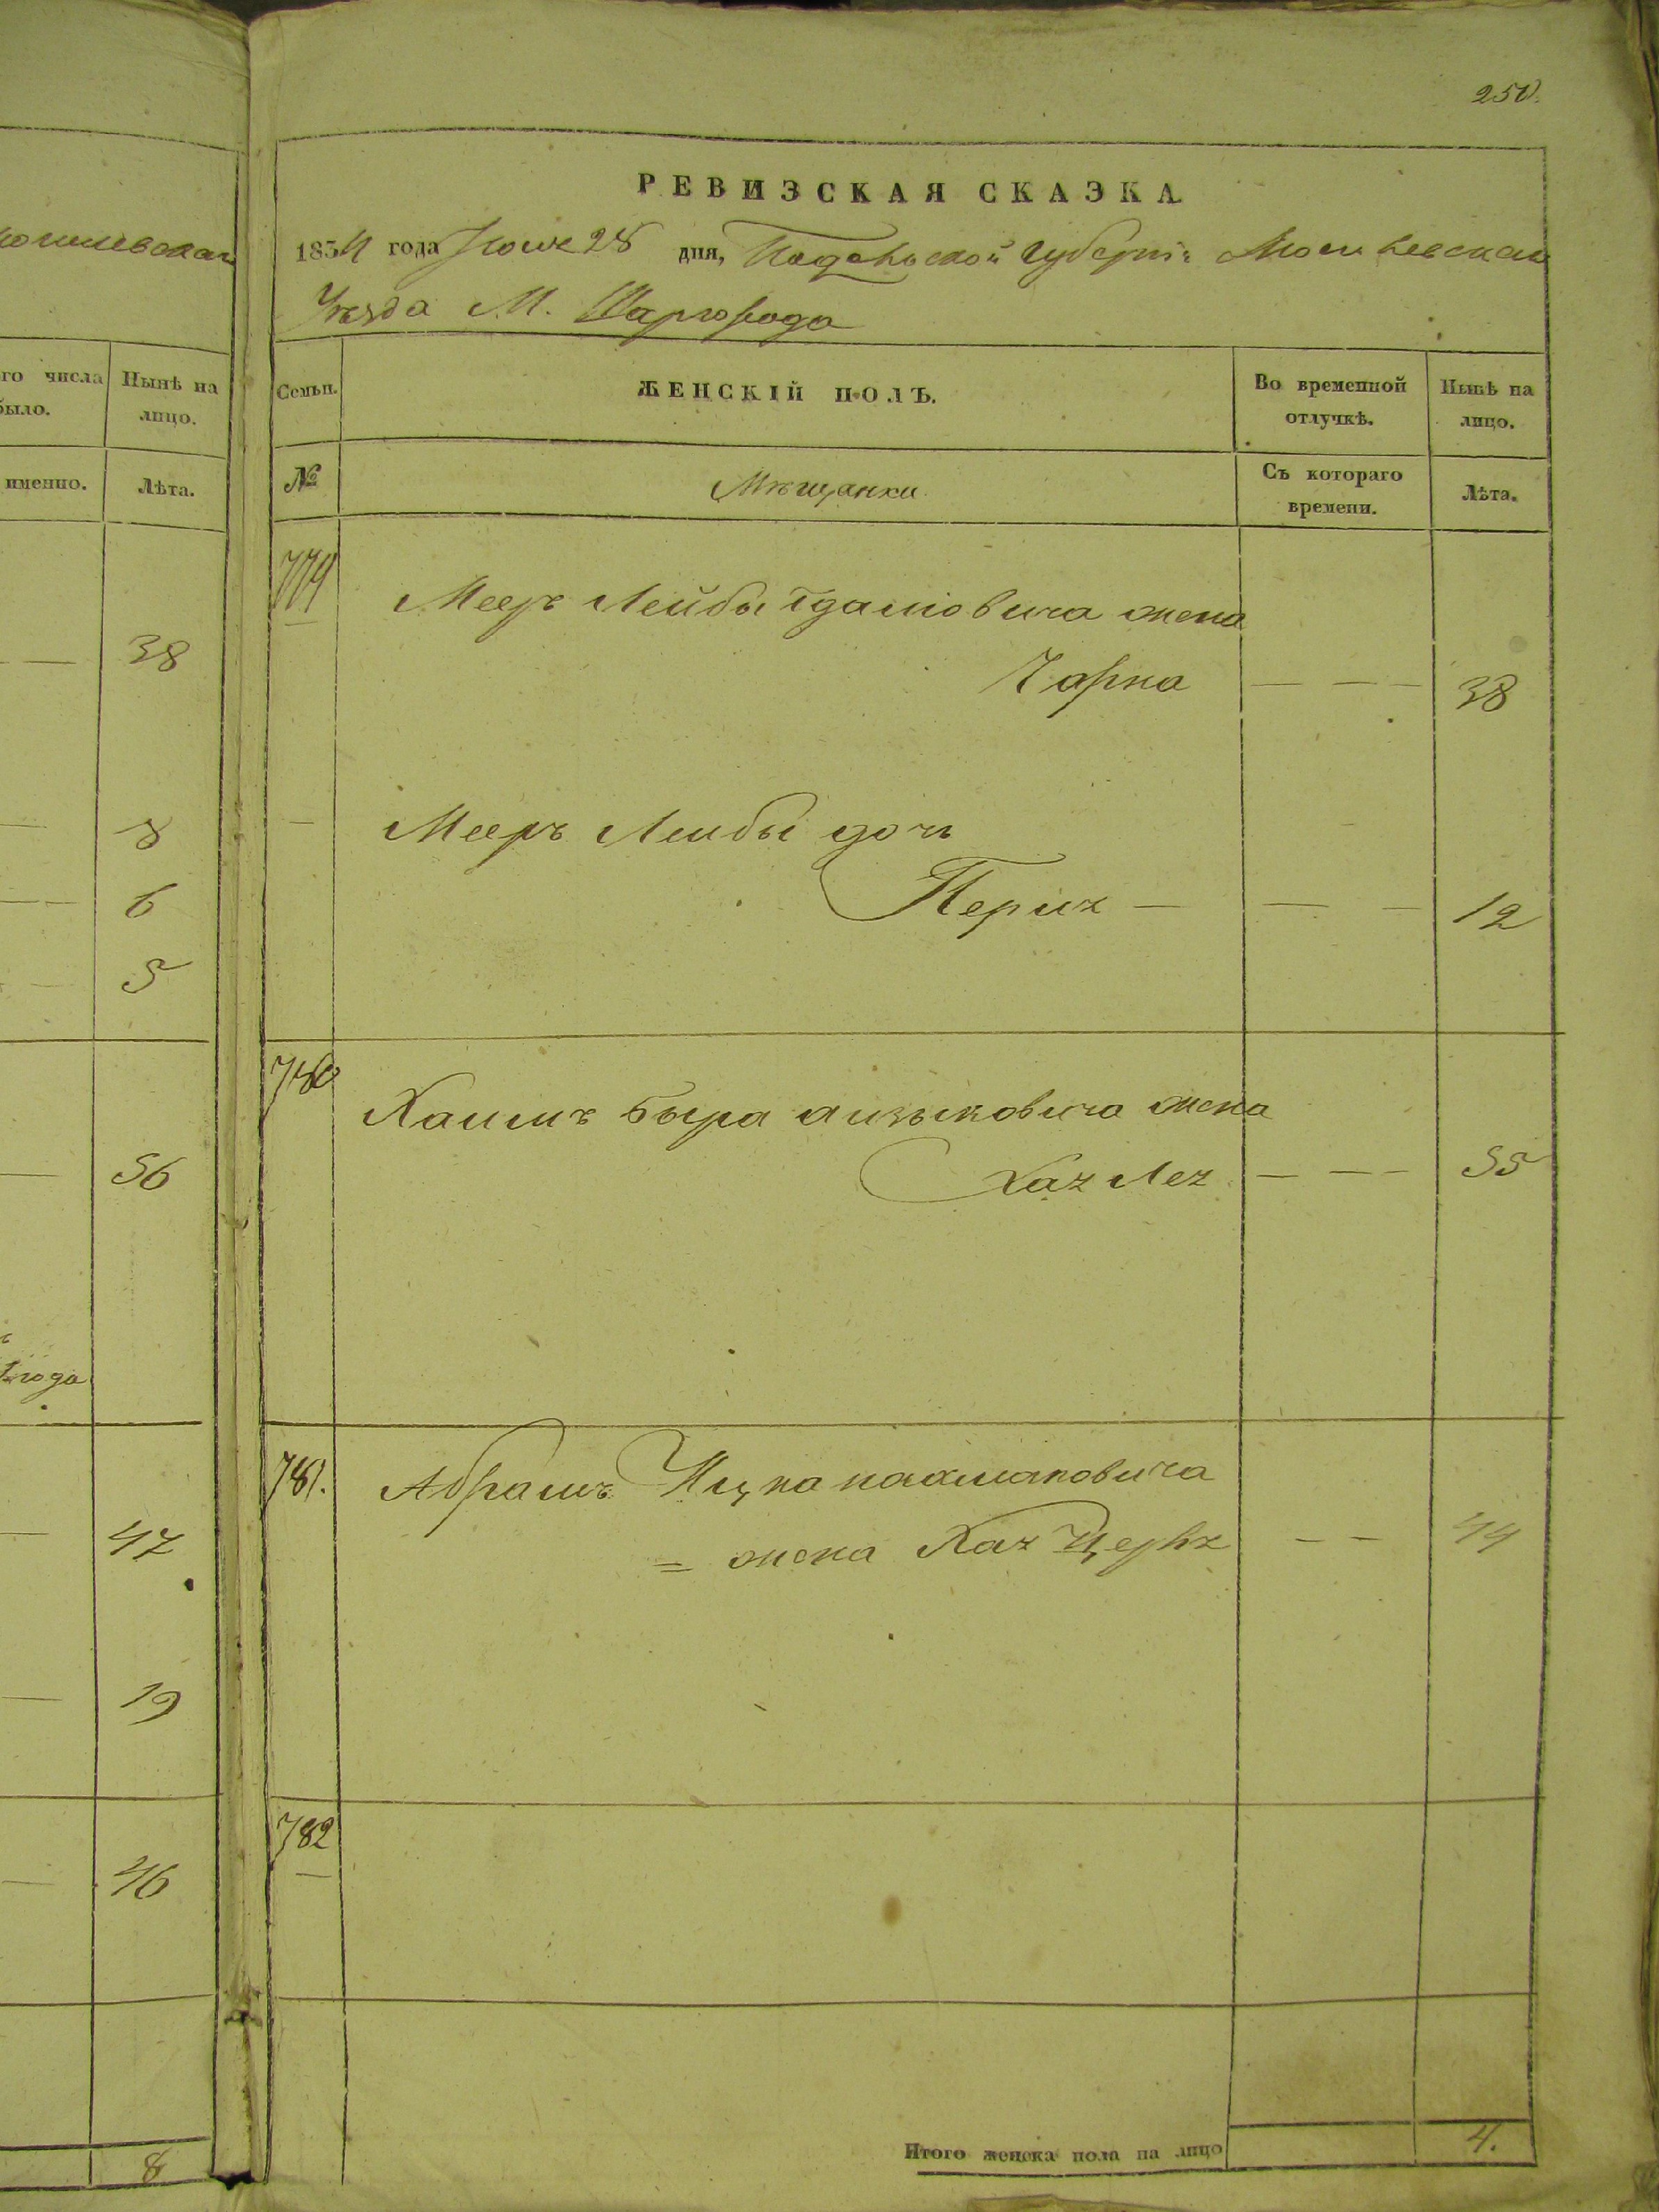 250.
РЕВИЗСКАЯ СКАЗКА
1834 года Июня 28 дня, Подольской Губерніи Могилевскаго
Уѣзда М. Шаргорода
го числа
было.
Нынѣ на
лицо.
Семьи.
ЖЕНСКІЙ ПОЛЪ.
Во временной
отлучкѣ.
Нынѣ на
лицо.
именно.
Лѣта.
№
Мѣщанки
Съ котораго
времени.
Лѣта.
779
Мееръ Лейбы Гдаліовича жена
38
Чарна — — — 38
8
Мееръ Лейбы дочь
6
Перля — — — 12
5
780
Хаимъ Бера Айзыковича жена
56
Хая Лея — — — 55
года
781.
Абрамъ Ицка Нахмановича
47
= жена Хая Церля — — 44
19
782
46
Итого женска пола на лицо 4.
8